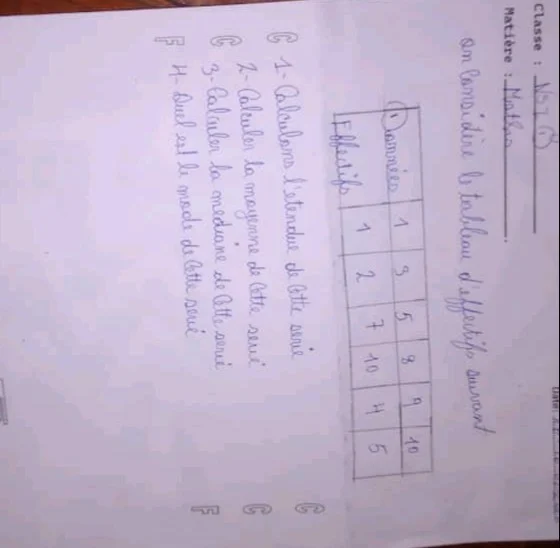 Classe : NS I
Matière : Maths
On Considère le tableau d'effectifs suivant
Données 1 3 5 8 9 10
Effectifs 1 2 7 10 4 5
C 1- Calculons l'étendue de cette serie C
2- Calculer la moyenne de cette serie C
C 3- Calculer la mediane de cette serie
F 4- Quel est le mode de cette serie F